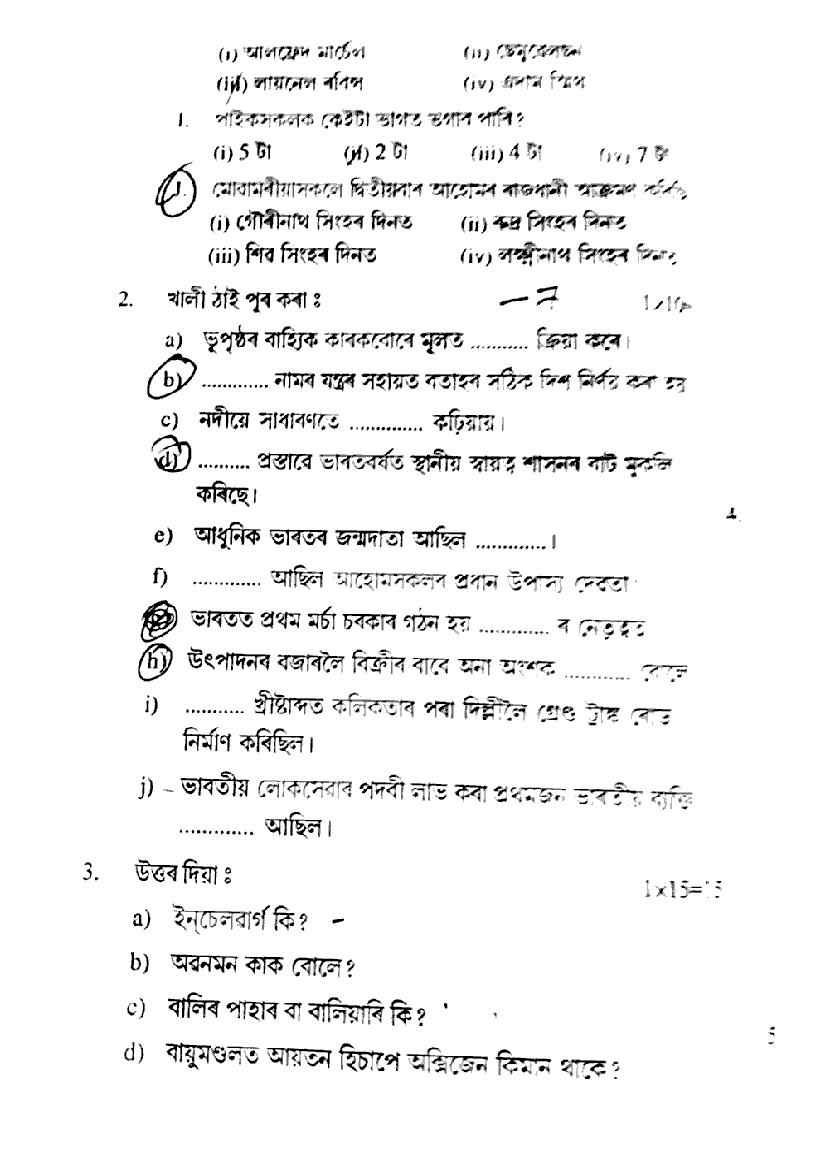 (i) আলফ্ৰেদ মাৰ্চেল (ii)
(iii) লায়নেল ৰবিন্স (iv) এদাম স্মিথ
1. পাইকসকলক কেইটা ভাগত ভগাব পাৰি?
(i) 5 টা (ii) 2 টা (iii) 4 টা (iv) 7 টা
J. মোৱামৰীয়াসকলে দ্বিতীয়বাৰ আহোমৰ ৰাজধানী আক্ৰমণ কৰিছিল
(i) গৌৰীনাথ সিংহৰ দিনত (ii) ৰুদ্ৰ সিংহৰ দিনত
(iii) শিৱ সিংহৰ দিনত (iv) লক্ষ্মীনাথ সিংহৰ দিনত
2. খালী ঠাই পূৰ কৰা ঃ – 7 1×10
a) ভূপৃষ্ঠৰ বাহ্যিক কাৰকবোৰে মূলত ........... ক্ৰিয়া কৰে।
b) ............. নামৰ যন্ত্ৰৰ সহায়ত বতাহৰ সঠিক দিশ নিৰ্ণয় কৰা হয়
c) নদীয়ে সাধাৰণতে .............. কঢ়িয়ায়।
d) .......... প্ৰস্তাৱে ভাৰতবৰ্ষত স্থানীয় স্বায়ত্ব শাসনৰ বাট মুকলি
কৰিছে।
e) আধুনিক ভাৰতৰ জন্মদাতা আছিল ..............।
f) ............. আছিল আহোমসকলৰ প্ৰধান উপাস্য দেৱতা
ভাৰতত প্ৰথম মৰ্চা চৰকাৰ গঠন হয় .............. ৰ নেতৃত্বত
h) উৎপাদনৰ বজাৰলৈ বিক্ৰীৰ বাবে অনা অংশক ............. বোলে
i) ........... খ্ৰীষ্টাব্দত কলিকতাৰ পৰা দিল্লীলৈ গ্ৰেণ্ড ট্ৰাঙ্ক ৰোড
নিৰ্মাণ কৰিছিল।
j) – ভাৰতীয় লোকসেৱাৰ পদবী লাভ কৰা প্ৰথমজন ভাৰতীয় ব্যক্তি
.............. আছিল।
3. উত্তৰ দিয়া ঃ 1×15=15
a) ইন্‌চেলবাৰ্গ কি? –
b) অৱনমন কাক বোলে?
c) বালিৰ পাহাৰ বা বালিয়াৰি কি?
d) বায়ুমণ্ডলত আয়তন হিচাপে অক্সিজেন কিমান থাকে?
5